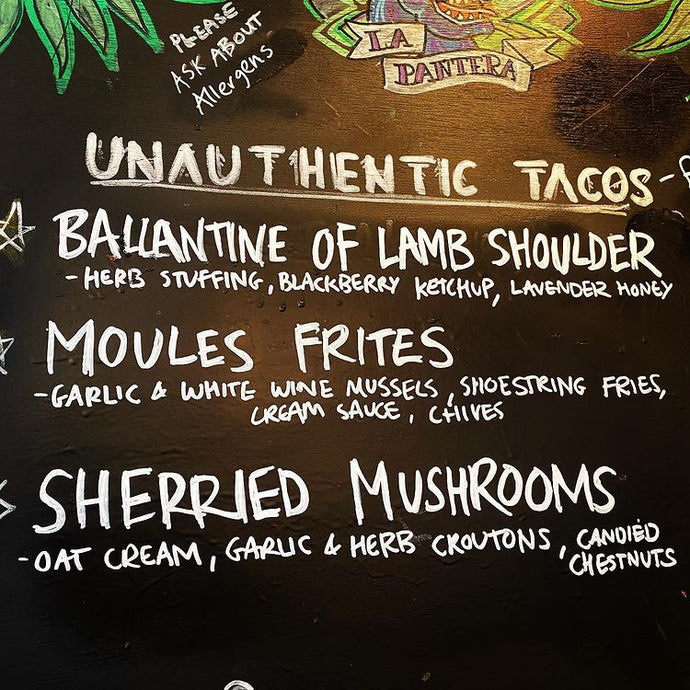 PLEASE
ASK ABOUT
Allergens
LA
PANTERA
UNAUTHENTIC TACOS -
BALLANTINE OF LAMB SHOULDER
- HERB STUFFING, BLACKBERRY KETCHUP, LAVENDER HONEY
MOULES FRITES
- GARLIC & WHITE WINE MUSSELS, SHOESTRING FRIES,
CREAM SAUCE, CHIVES
SHERRIED MUSHROOMS
- OAT CREAM, GARLIC & HERB CROUTONS, CANDIED
CHESTNUTS